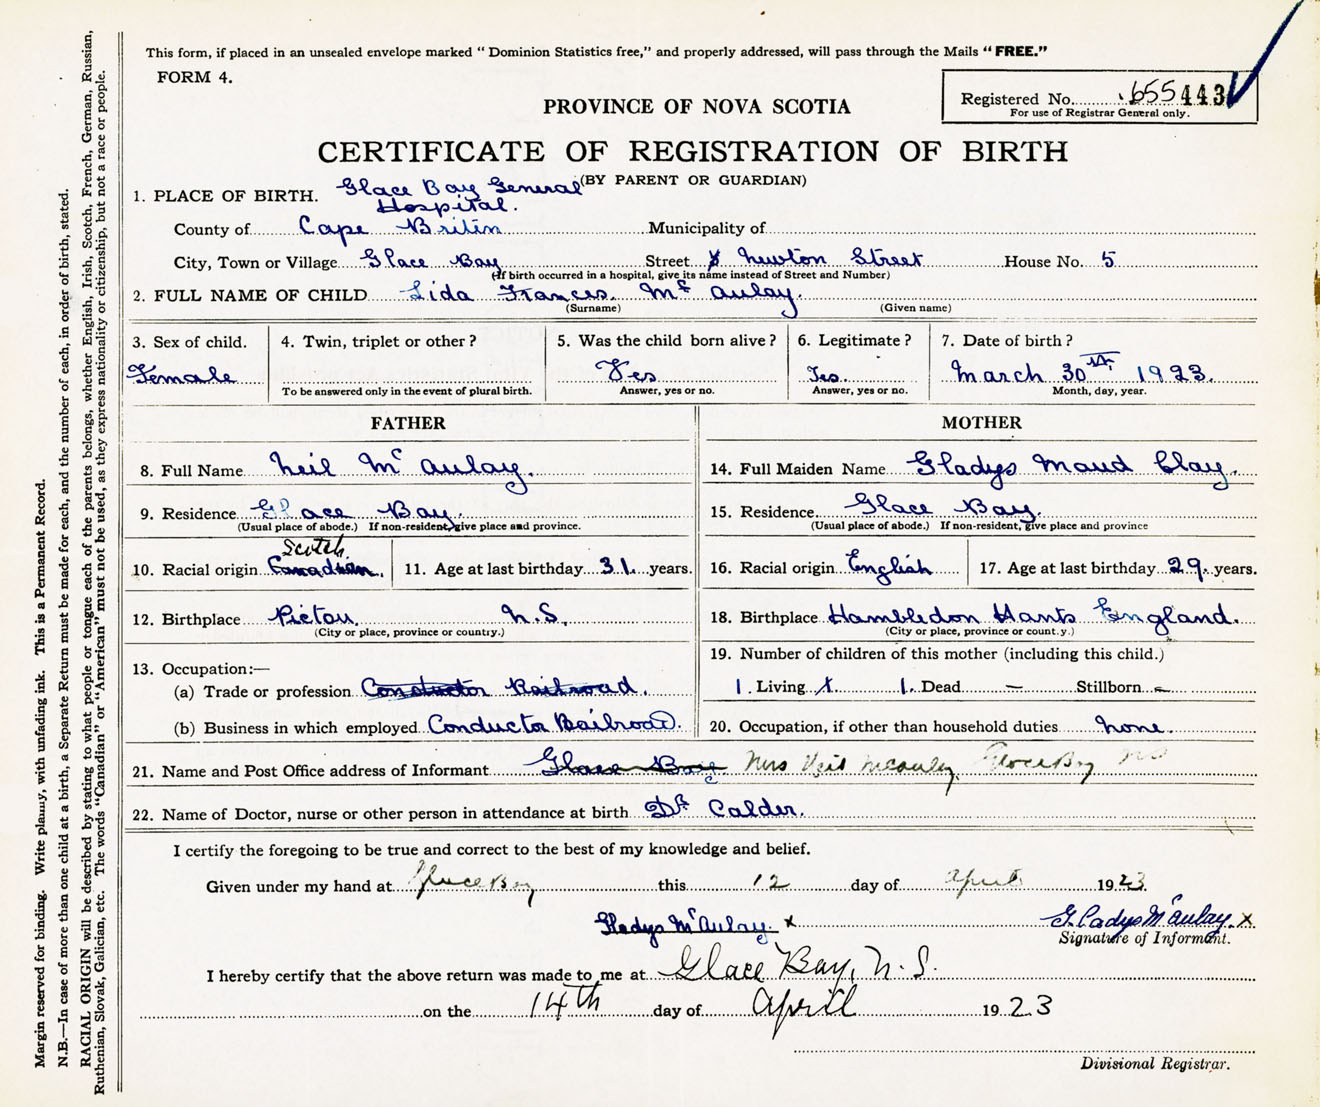 This form, if placed in an unsealed envelope marked “Dominion Statistics free,” and properly addressed, will pass through the Mails “FREE.”
FORM 4.
Registered No. 655443
For use of Registrar General only.
PROVINCE OF NOVA SCOTIA
CERTIFICATE OF REGISTRATION OF BIRTH
(BY PARENT OR GUARDIAN)
1. PLACE OF BIRTH. Glace Bay General
Hospital.
County of Cape Briten Municipality of
City, Town or Village Glace Bay Street Newton Street House No. 5
(If birth occurred in a hospital, give its name instead of Street and Number)
2. FULL NAME OF CHILD Lida Frances. Mc Aulay.
(Surname) (Given name)
3. Sex of child. 4. Twin, triplet or other? 5. Was the child born alive? 6. Legitimate? 7. Date of birth?
Female Yes Yes. March 30th 1923.
To be answered only in the event of plural birth. Answer, yes or no. Answer, yes or no. Month, day, year.
FATHER MOTHER
8. Full Name Neil Mc Aulay. 14. Full Maiden Name Gladys Maud Clay.
9. Residence Glace Bay. 15. Residence Glace Bay.
(Usual place of abode.) If non-resident, give place and province. (Usual place of abode.) If non-resident, give place and province
Scotch
10. Racial origin Canadian. 11. Age at last birthday 31. years. 16. Racial origin English 17. Age at last birthday 29. years.
12. Birthplace Pictou. N.S. 18. Birthplace Hambledon Hants England.
(City or place, province or country.) (City or place, province or count.y.)
13. Occupation:— 19. Number of children of this mother (including this child.)
(a) Trade or profession Conductor Railroad. 1. Living 1. Dead — Stillborn —
(b) Business in which employed Conductor Railroad. 20. Occupation, if other than household duties none.
21. Name and Post Office address of Informant Glace Bay. Mrs Neil McAuley, Glace Bay NS
22. Name of Doctor, nurse or other person in attendance at birth Dr Calder.
I certify the foregoing to be true and correct to the best of my knowledge and belief.
Given under my hand at Glace Bay this 12 day of April 1923.
Gladys McAulay x Gladys McAulay. x
Signature of Informant.
I hereby certify that the above return was made to me at Glace Bay, N.S.
on the 14th day of April 1923
Divisional Registrar.
Margin reserved for binding. Write plainly, with unfading ink. This is a Permanent Record.
N.B.—In case of more than one child at a birth, a Separate Return must be made for each, and the number of each, in order of birth, stated.
RACIAL ORIGIN will be described by stating to what people or tongue each of the parents belongs, whether English, Irish, Scotch, French, German, Russian,
Ruthenian, Slovak, Galician, etc. The words “Canadian” or “American” must not be used, as they express nationality or citizenship, but not a race or people.